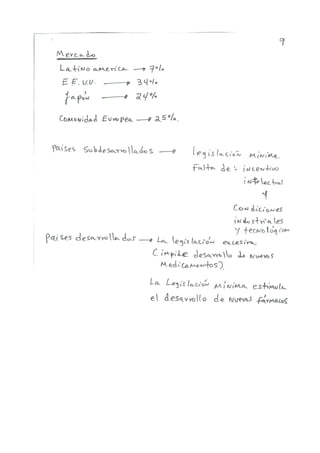 9
Mercado
Latino america → 7%
EE.UU. → 34%
Japón → 24%
Comunidad Europea → 25%.
Países Subdesarrollados → legislación mínima.
Falta de: incentivo
intelectual
y
Condiciones
industriales
y tecnológicas
Países desarrollados → La legislación excesiva.
(impide desarrollo de nuevos
Medicamentos).
La Legislación mínima estimula
el desarrollo de nuevos fármacos